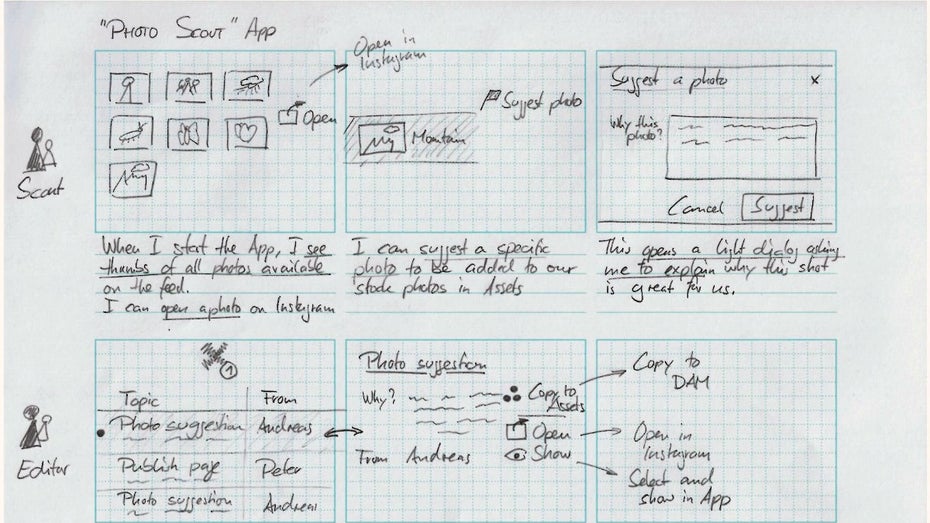 "Photo Scout" App
Open in
Instagram
Open
Suggest photo
Mountain
Suggest a photo
x
Why this
photo?
Cancel
Suggest
Scout
When I start the App, I see
thumbs of all photos available
on the feed.
I can open a photo on Instagram
I can suggest a specific
photo to be added to our
stock photos in Assets
This opens a light dialog asking
me to explain why this shot
is great for us.
1
Topic
From
Photo suggestion
Andreas
Publish page
Peter
Photo suggestion
Andreas
Editor
Photo suggestion
Why?
From Andreas
Copy to
Assets
Open
Show
Copy to
DAM
Open in
Instagram
Select and
show in App